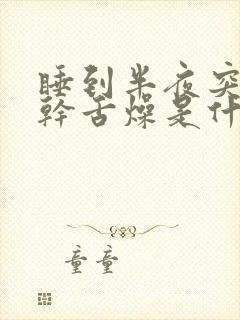 睡到半夜突
幹舌燥是什
童童